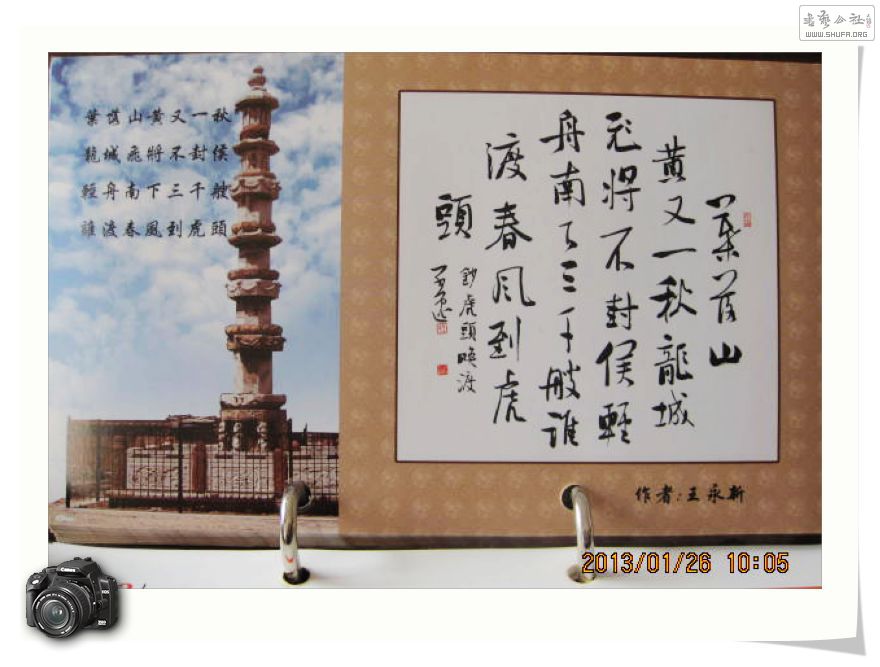 書藝公社
WWW.SHUFA.ORG
葉落山黃又一秋
龍城飛將不封侯
輕舟南下三千艘
誰渡春風到虎頭
葉落山
黃又一秋龍城
飛將不封侯輕
舟南下三千艘誰
渡春風到虎
頭
鈔虎頭喚渡
作者:王永新
2013/01/26 10:05
Canon
EOS